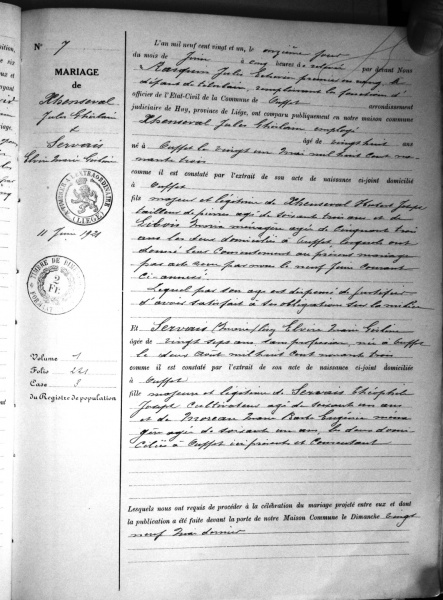 N° 7
MARIAGE
de
Xhenseval
Jules Ghislain
&
Servais
Elvire Marie Ghislaine
11 Juin 1921
Volume 1
Folio 221
Case 8
du Registre de population
L'an mil neuf cent vingt et un, le onzième jour
du mois de Juin à cinq heures de relevée par devant Nous
Jules premier
remplissant la fonction d'
officier de l'Etat-Civil de la Commune de Ouffet arrondissement
judiciaire de Huy, province de Liége, ont comparu publiquement en notre maison commune
Xhenseval Jules Ghislain employé
âgé de vingt huit ans
né à Ouffet le vingt un Mai mil huit cent no-
nante trois
comme il est constaté par l'extrait de son acte de naissance ci-joint domicilié
à Ouffet
fils majeur et légitime de Xhenseval Joseph
tailleur de pierres agé de soixante trois ans et de
Maria ménagère agée de cinquante trois
ans les deux domiciliés à Ouffet lesquels ont
donné leur consentement au présent mariage
par acte par nous le neuf Juin courant
ci-annexé
Lequel par son age est dispensé de justifier
d'avoir satisfait à ses obligations sur la milice
Et Servais Elvire Marie Ghislaine
âgée de vingt sept ans sans profession, née à Ouffet
le deux Août mil huit cent nonante trois
comme il est constaté par l'extrait de son acte de naissance ci-joint domiciliée
à Ouffet
fille majeure et légitime de Servais Théophile
Joseph cultivateur agé de soixante un ans
et de Moreau Marie Eugénie ména-
gère agée de soixante un ans, les deux domi-
ciliés à Ouffet ici présents et consentant
Lesquels nous ont requis de procéder à la célébration du mariage projeté entre eux et dont
la publication a été faite devant la porte de notre Maison Commune le Dimanche vingt
neuf Mai dernier